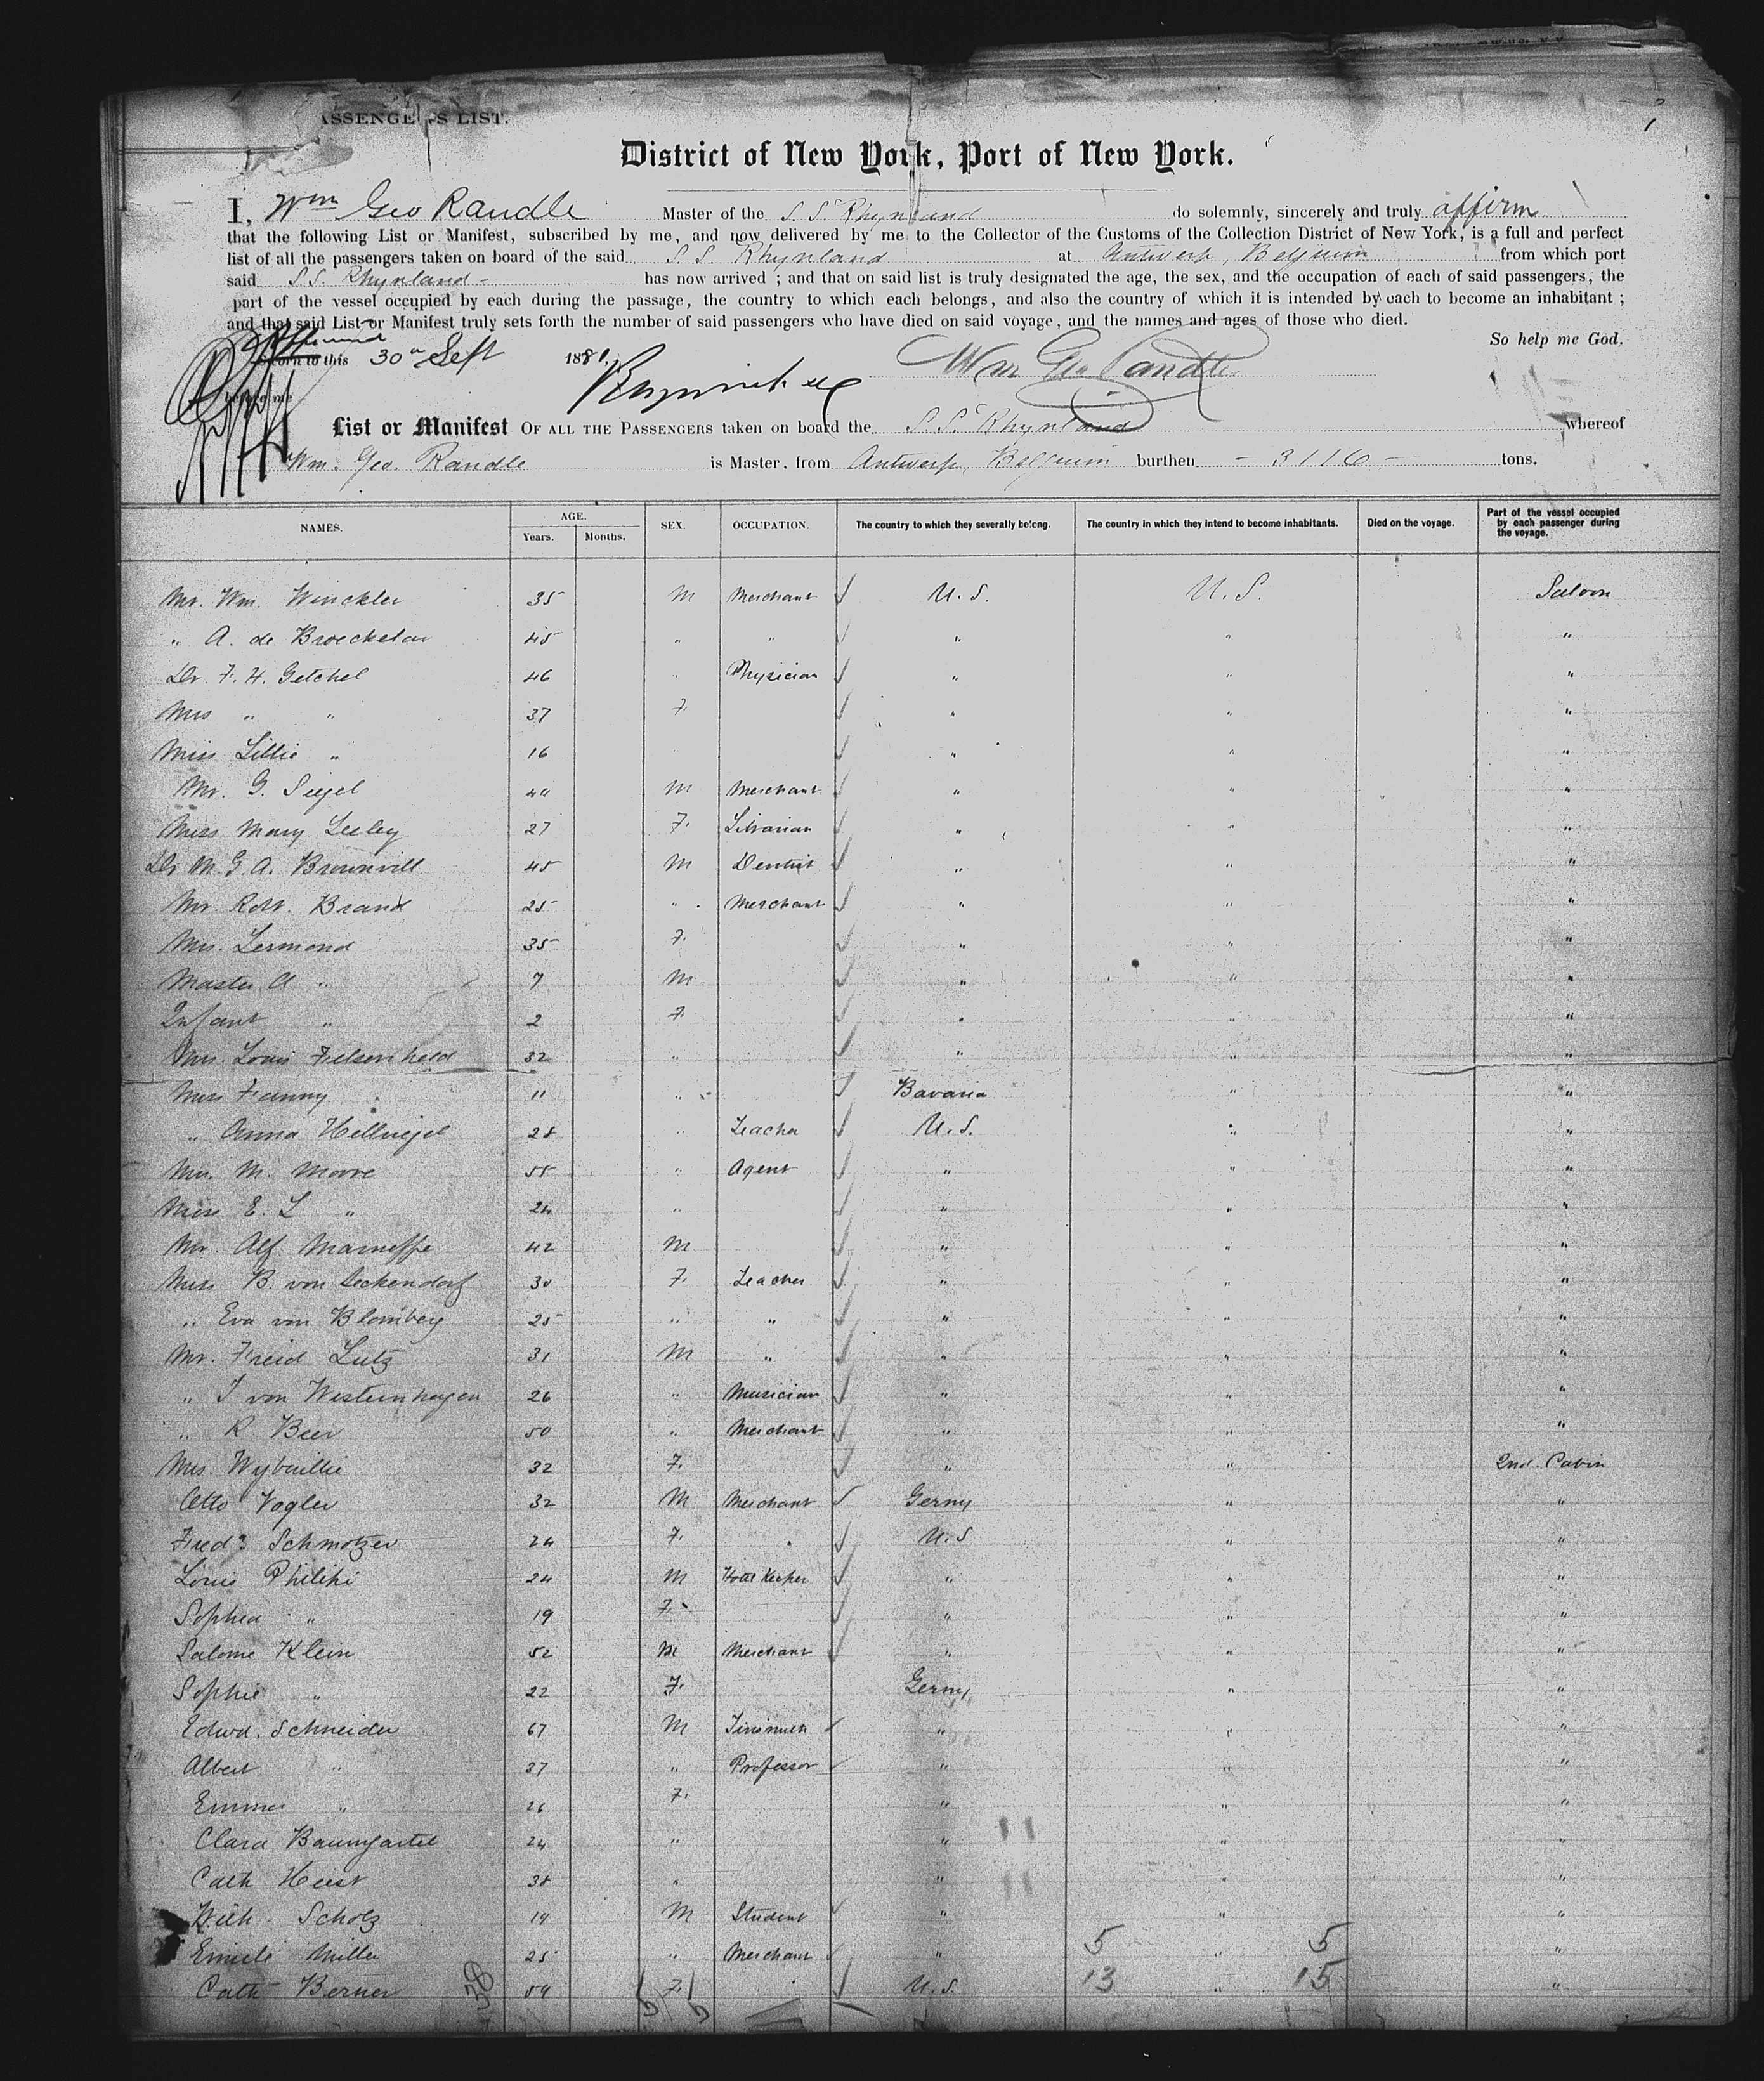 PASSENGERS LIST.
District of New York, Port of New York.
I, Wm Geo Randle Master of the S.S. Rhynland do solemnly, sincerely and truly affirm
that the following List or Manifest, subscribed by me, and now delivered by me to the Collector of the Customs of the Collection District of New York, is a full and perfect
list of all the passengers taken on board of the said S.S. Rhynland at Antwerp, Belguim from which port
said S.S. Rhynland - has now arrived ; and that on said list is truly designated the age, the sex, and the occupation of each of said passengers, the
part of the vessel occupied by each during the passage, the country to which each belongs, and also the country of which it is intended by each to become an inhabitant ;
and that said List or Manifest truly sets forth the number of said passengers who have died on said voyage, and the names and ages of those who died.
So help me God.
Affirmed
Sworn to this 30 Sept 1881. Wm Geo Randle
before me
List or Manifest OF ALL THE PASSENGERS taken on board the S.S. Rhynland whereof
Wm. Geo. Randle is Master, from Antwerp, Belguim burthen - 3116 - tons.
NAMES. AGE. Years. Months. SEX. OCCUPATION. The country to which they severally belong. The country in which they intend to become inhabitants. Died on the voyage. Part of the vessel occupied by each passenger during the voyage.
Mr. Wm. Winckler 35 M Merchant U.S. U.S. Saloon
" A. de Broeckelaer 45 " " " " "
Dr. F. H. Getchel 46 " Physician " " "
Mrs " " 37 F. " " "
Miss Lillie " 16 " " " "
Mr. G. Siegel 40 M Merchant " " "
Miss Mary Lesley 27 F. Librarian " " "
Dr M. G. A. Brownvill 45 M Dentist " " "
Mr. Robt. Brand 25 " Merchant " " "
Mrs. Lermond 35 F. " " "
Master A " 7 M " " "
Infant " 2 F. " " "
Mrs. Louis Felsenheld 32 " " " "
Miss Fanny 11 " Bavaria " "
" Anna Hellriegel 28 " Teacher U.S. " "
Mrs. M. Moore 55 " Agent " " "
Miss E. L " 24 " " " "
Mr. Alf. Marneffe 42 M " " "
Miss B. von Seckendorf 30 F. Teacher " " "
" Eva von Blomberg 25 " " " " "
Mr. Freid Lutz 31 M " " " "
" T von Westernhagen 26 " Musician " " "
" R Beer 50 " Merchant " " "
Mrs. Wybaillie 32 F. " " 2nd. Cabin
Otto Vogler 32 M Merchant Germy " "
Fredk Schmotzer 24 F. " U.S " "
Louis Philipi 24 M Hotel Keeper " " "
Sophia " 19 F. " " "
Salome Klein 52 M Merchant " " "
Sophie " 22 F. Germy " "
Edwd. Schneider 67 M Tinsmith " " "
Albert " 37 " Professor " " "
Emma " 26 F. " " "
Clara Baumgartel 24 " " " "
Cath Heist 38 " " " "
Wilh. Scholz 19 M Student " " "
Emile Miller 25 " Merchant " 5 " 5 "
Cath Berner 59 F. U.S. 13 " 15 "